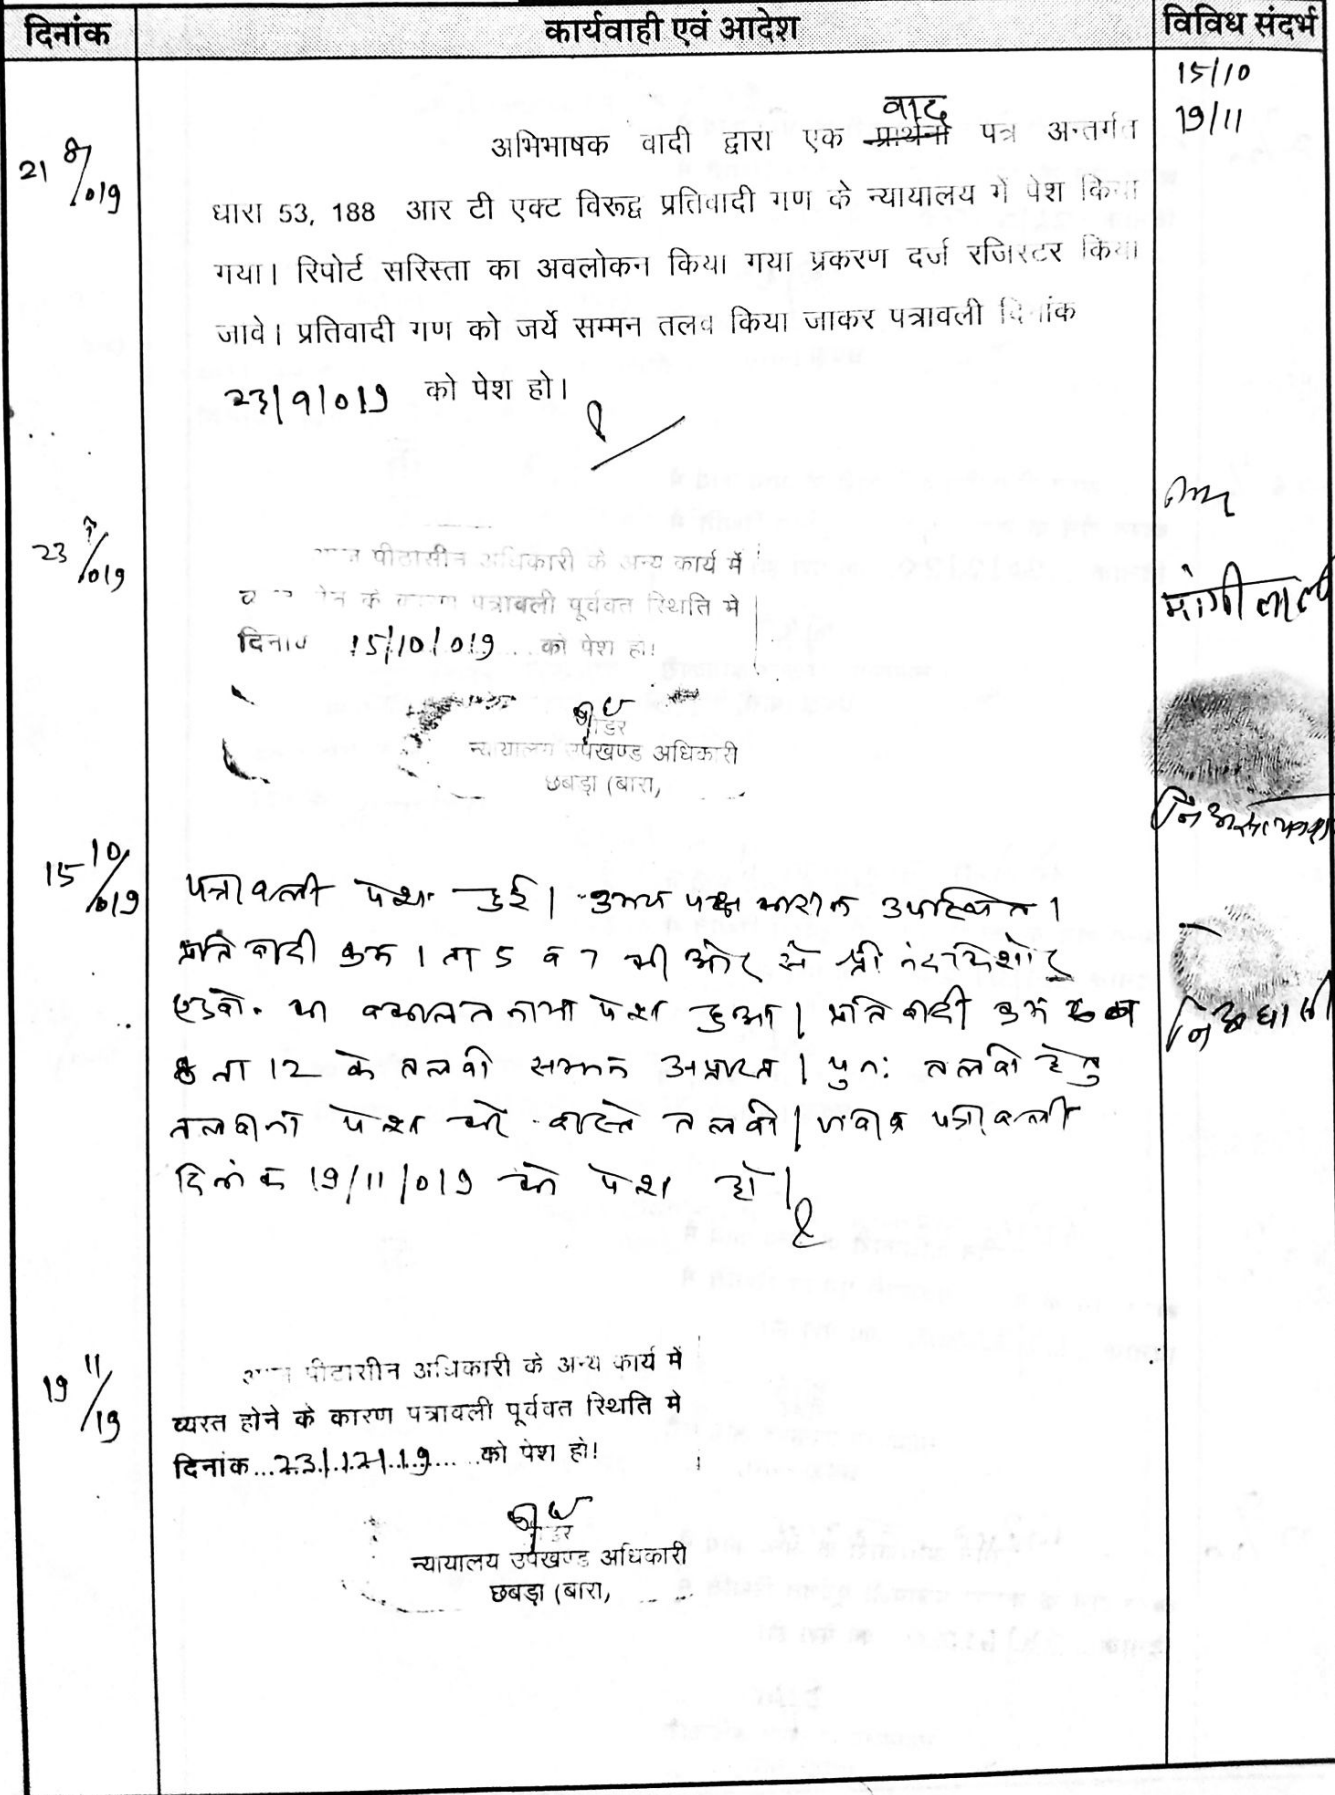 दिनांक कार्यवाही एवं आदेश विविध संदर्भ
15/10
19/11
21 8/019
वाद
अभिभाषक वादी द्वारा एक प्रार्थना पत्र अन्तर्गत
धारा 53, 188 आर टी एक्ट विरूद्व प्रतिवादी गण के न्यायालय में पेश किया
गया। रिपोर्ट सरिस्ता का अवलोकन किया गया प्रकरण दर्ज रजिस्टर किया
जावे। प्रतिवादी गण को जर्ये सम्मन तलब किया जाकर पत्रावली दिनांक
23/9/019 को पेश हो।
23 9/019
पीठासीन अधिकारी के अन्य कार्य में
के कारण पत्रावली पूर्ववत स्थिति मे
दिनांक 15/10/019 को पेश हो!
रीडर
न्यायालय उपखण्ड अधिकारी
छबड़ा (बारा,
मांगीलाल
15 10/019
पत्रावली पेश हुई। उभय पक्ष उपस्थित।
प्रतिवादी क्रम 1 ता 5 व 7 की ओर से श्री नंदकिशोर
एडवो. का वकालतनामा पेश हुआ। प्रतिवादी क्रम
8 ता 12 के तलवी सम्मन अप्राप्त। पुनः तलवी हेतु
तलवाना पेश करे वास्ते तलवी। पत्रावली
दिनांक 19/11/019 को पेश हो।
19 11/19
पीठासीन अधिकारी के अन्य कार्य में
व्यस्त होने के कारण पत्रावली पूर्ववत स्थिति मे
दिनांक...23/12/19.... को पेश हो!
रीडर
न्यायालय उपखण्ड अधिकारी
छबड़ा (बारा,